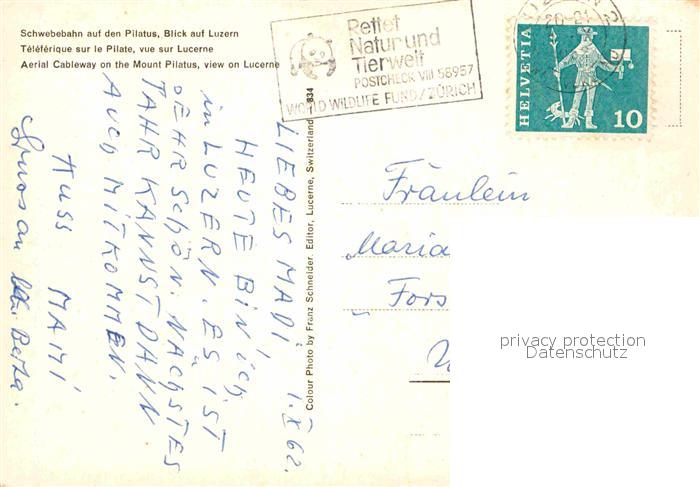 Schwebebahn auf den Pilatus, Blick auf Luzern
Téléférique sur le Pilate, vue sur Lucerne
Aerial Cableway on the Mount Pilatus, view on Lucerne
Rettet
Natur und
Tierwelt
POSTCHECK VIII 58957
WORLD WILDLIFE FUND/ZÜRICH
20-21
HELVETIA
10
LIEBES MADI, 1.X 62.
HEUTE BIN ich
in LUZERN. ES IST
SEHR SCHÖN. NÄCHSTES
JAHR KANNST DANN
AUCH MITKOMMEN.
KUSS MAMI
Gruss an
Berta.
Colour Photo by Franz Schneider. Editor, Lucerne, Switzerland 834
Fräulein
Maria
Fors
privacy protection
Datenschutz